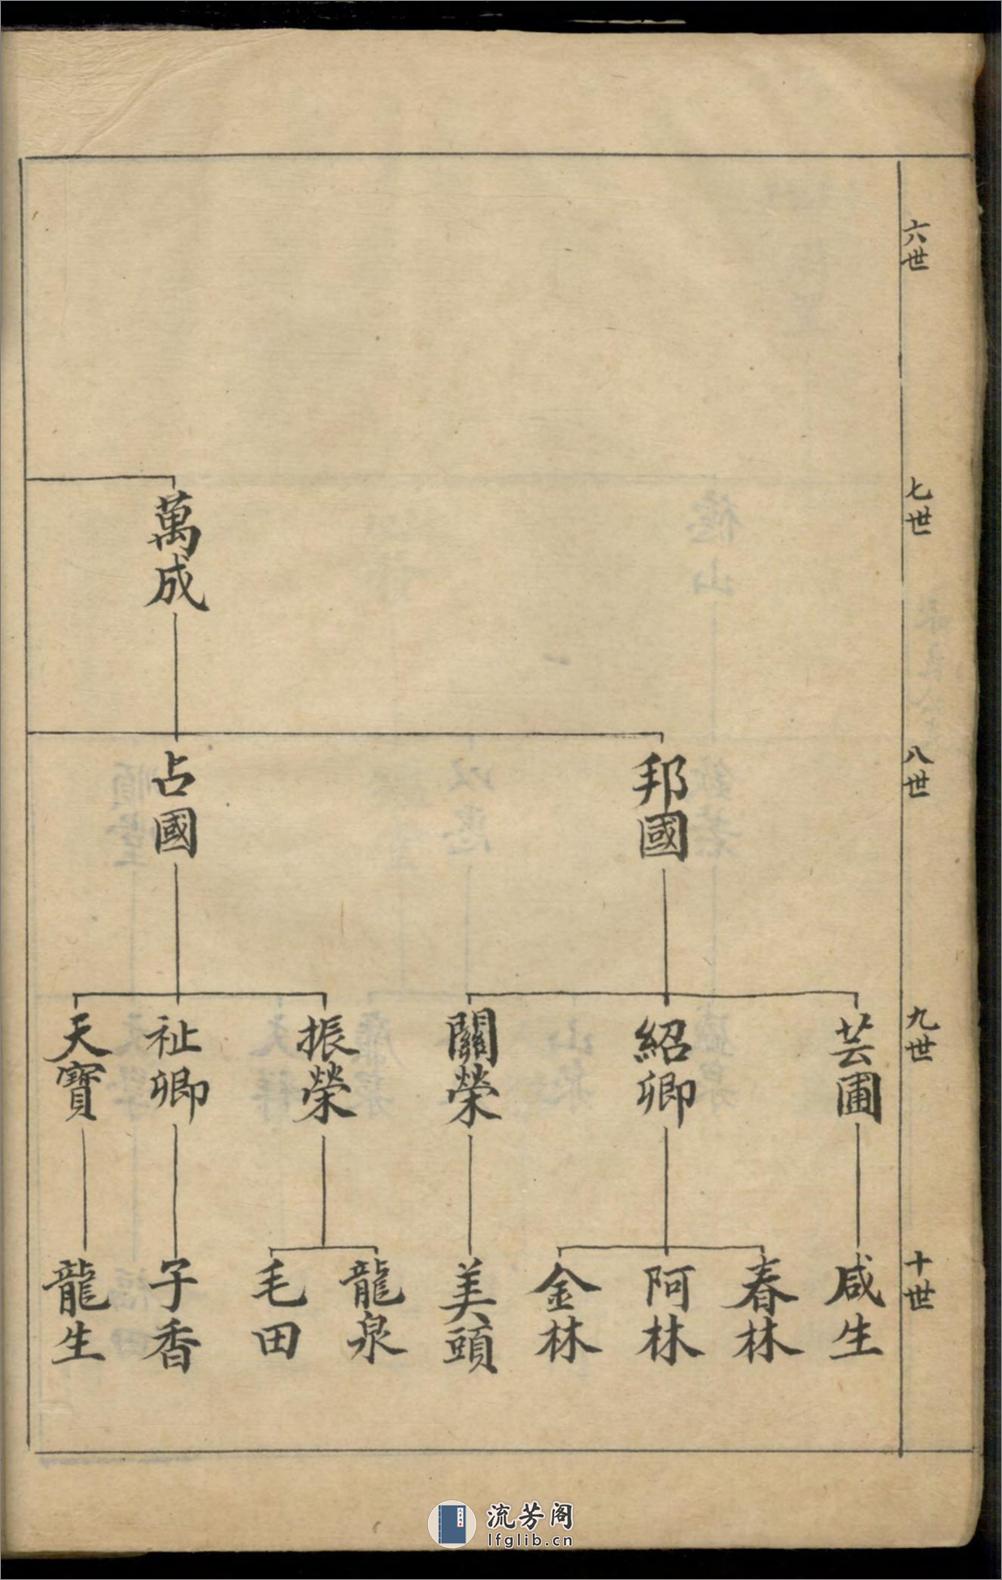 六世
七世
八世
九世
十世
萬成
邦國
占國
芸圃
紹卿
關榮
振榮
祉卿
天寶
咸生
春林
阿林
金林
美頭
龍泉
毛田
子香
龍生
流芳阁
lfglib.cn